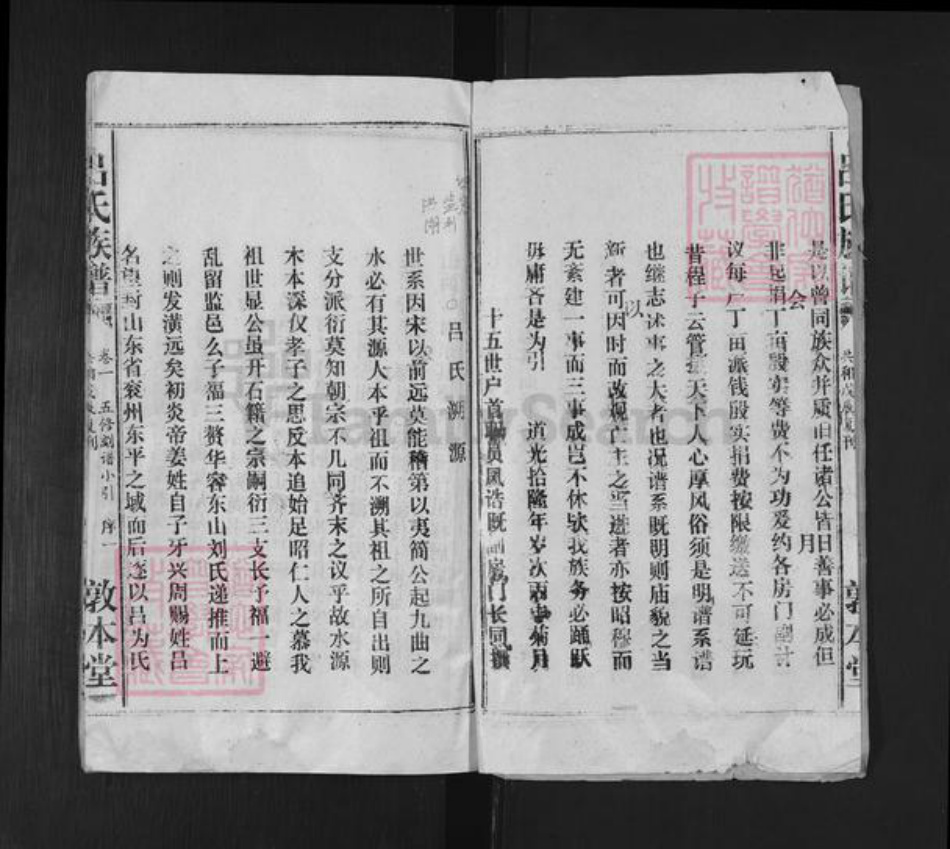 吕氏族谱
共和戊辰夏刊
敦本堂
是以曾同族众并质旧任诸公皆曰善事必成但
非起捐丁亩殷实等费不为功爰约各房门副计
会
月
议每一丁亩派钱殷实捐费按限缴送不可延玩
昔程子云管摄天下人心厚风俗须是明谱系谱
也继志述事之大者也况谱系既明则庙貌之当
以
新者可因时而改观亡主之当进者亦按昭穆而
无紊建一事而三事成岂不休欤我族务必踊跃
毋庸吝是为引
道光拾陆年岁次丙申菊月
十五世户首职员凤诰既副房门长同撰
吕氏溯源
世系因宋以前远莫能稽第以夷简公起九曲之
水必有其源人本乎祖而不溯其祖之所自出则
支分派衍莫知朝宗不几同齐末之议乎故水源
木本深仪孝子之思反本追始足昭仁人之慕我
祖世显公虽开石籍之宗嗣衍三支长子福一避
乱留监邑么子福三赘华容东山刘氏递推而上
之则发潢远矣初炎帝姜姓自子牙兴周赐姓吕
名望封山东省衮州东平之城而后遂以吕为氏
吕氏族谱
卷一
五修刻谱小引
序一
敦本堂
FamilySearch